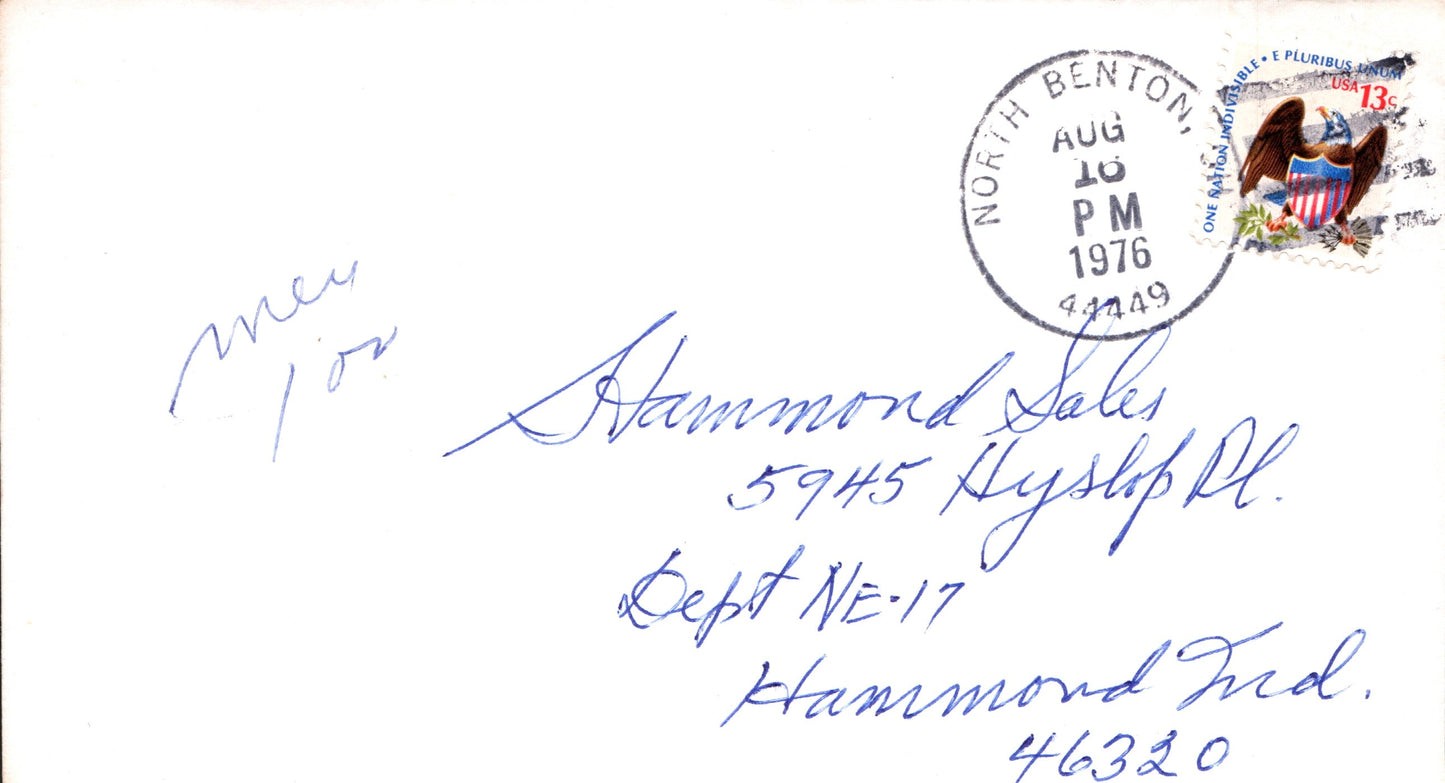 ONE NATION INDIVISIBLE • E PLURIBUS UNUM
USA 13c
NORTH BENTON,
AUG
16
PM
1976
44449
1 00
Hammond Sales
5945 Hyslop Pl.
Dept NE-17
Hammond Ind.
46320